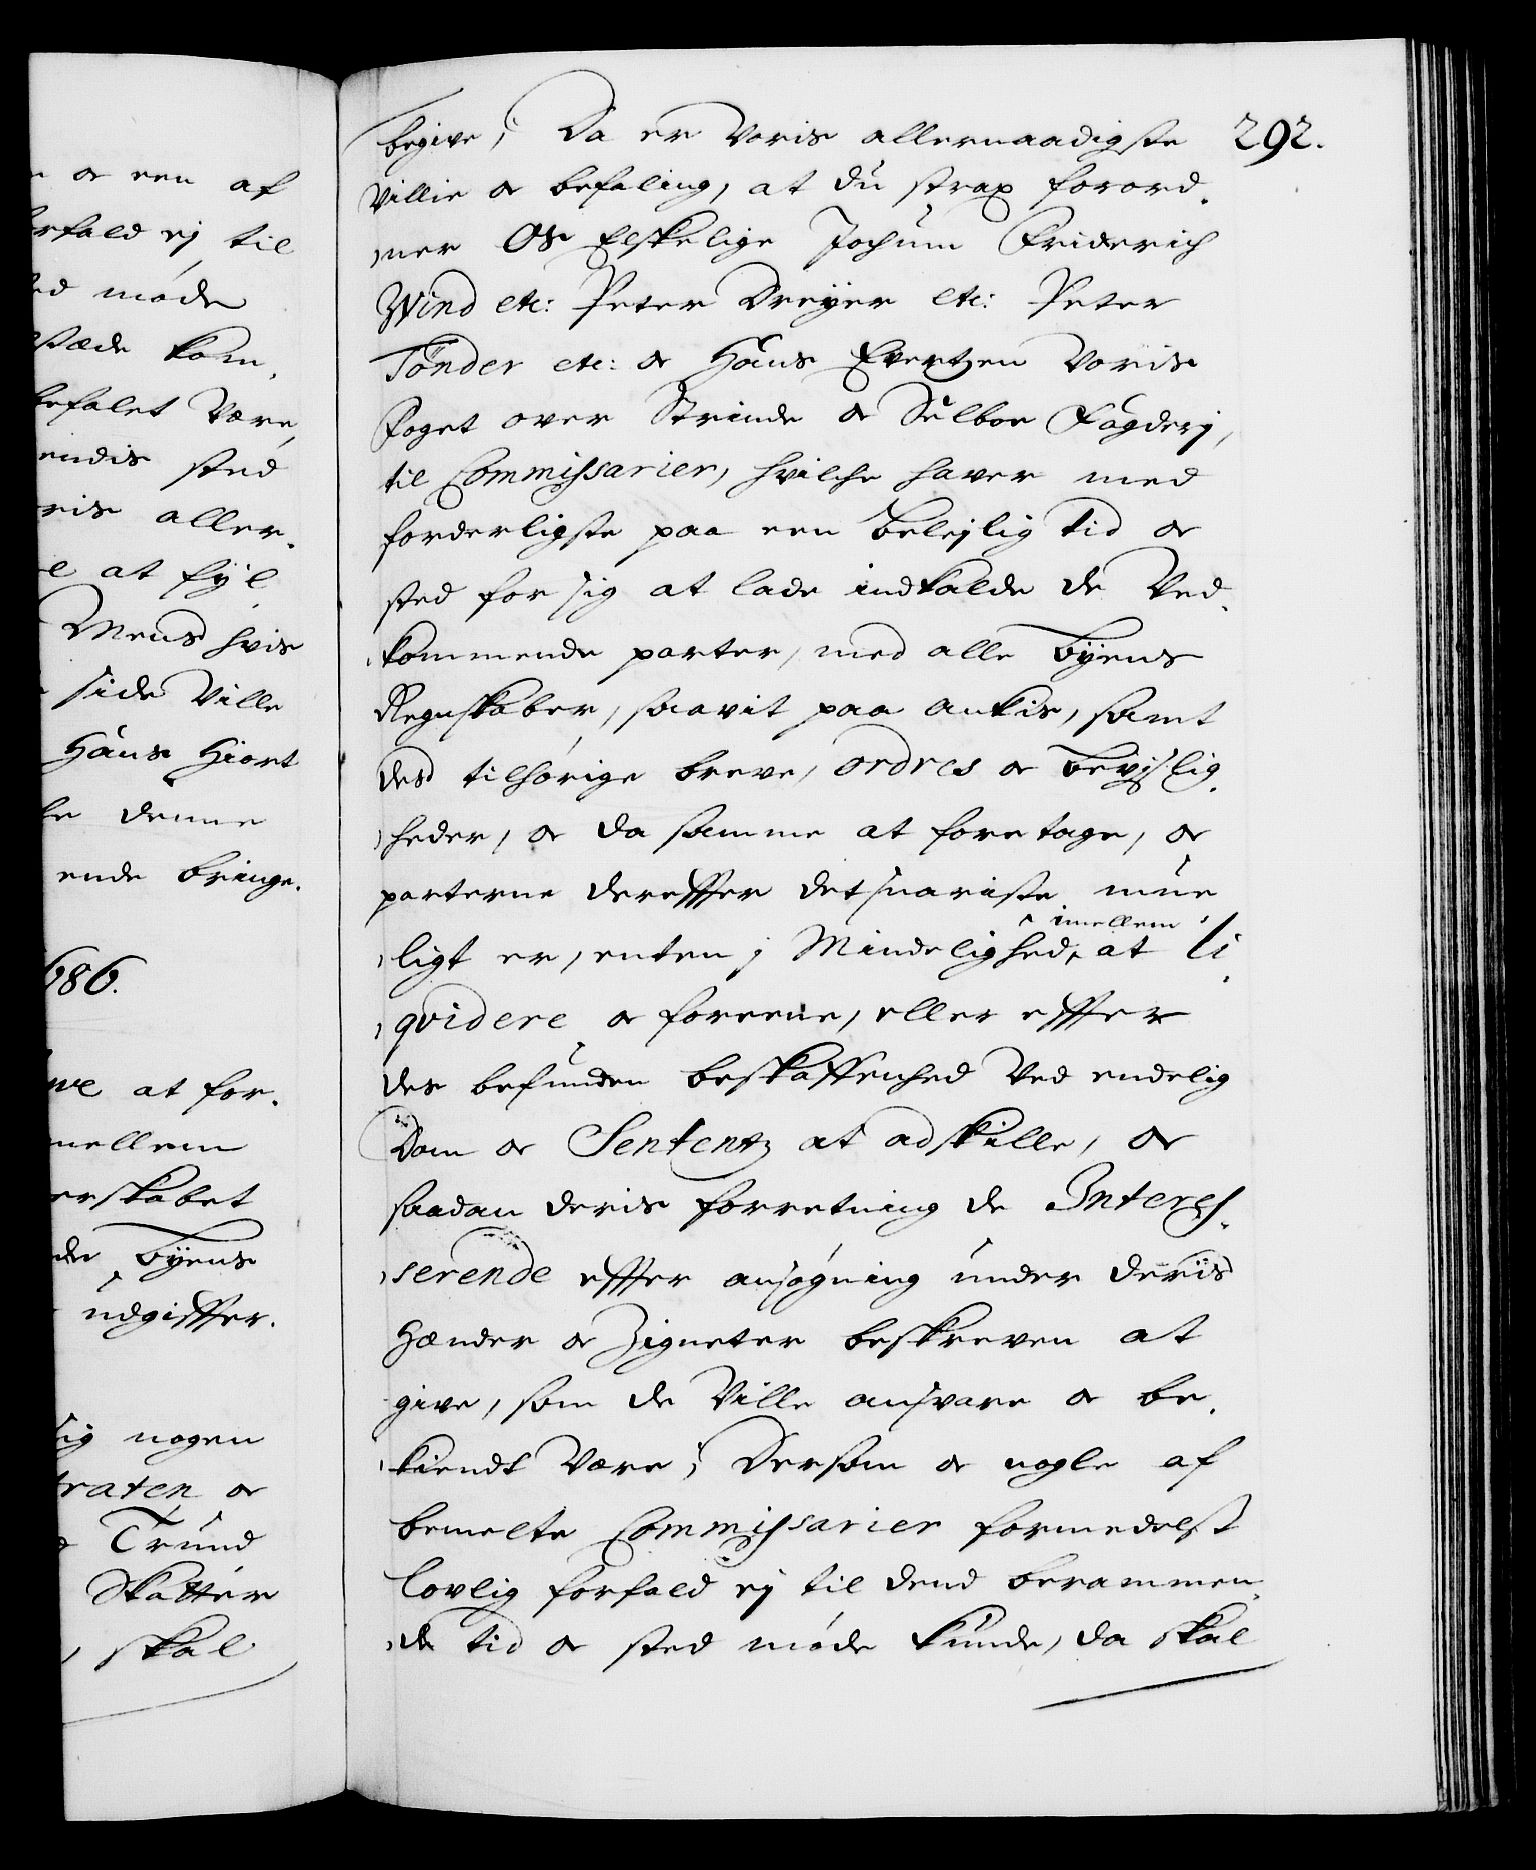 n oc een af
rfald ej til
ed møde
stæde kom,
befalet være,
endis sted
ris aller,
e at fyl
Mens hvis
side Ville
Hans Hiort
le denne
ende bringe.
686.
we at for,
mellem
erskabet
de Byens
udgiffter.
sig nogen
traten oc
Trund
Skatter
, skal
292.
begive; Da er Voris allernaadigste
Villie oc befaling, at du strax forord,
,ner Os Elskelige Jochum Friderich
Wind etc: Peter Dreyer etc: Peter
Tönder etc: oc Hans Evertzen Voris
Foget over Strinde oc Selboe Fogderj,
til Commissarier, hvilche haver med
forderligste paa een beleylig tid oc
sted for sig at lade indkalde de Ved,
,kommende parter, med alle Byens
Regnskaber, saavit paa ankis, samt
des tilhörige breve, ordres oc bevislig,
,heder, oc da samme at foretage, oc
parterne dereffter det snariste mue
,ligt er, enten j Mindelighed imellem at li,
,qvidere oc foreene, eller effter
des befunden beskaffenhed Ved endelig
Dom oc Sententz at adskille, oc
saadan deris forretning de Interes,
,serende effter ansøgning under deris
Hænder oc Zigneter beskreven at
give, som de Ville ansvare oc be,
,kiendt Være; Dersom oc nogle af
bemelte Commissarier formedelst
lovlig forfald ej til dend berammen,
,de tid oc sted møde kunde, da skal